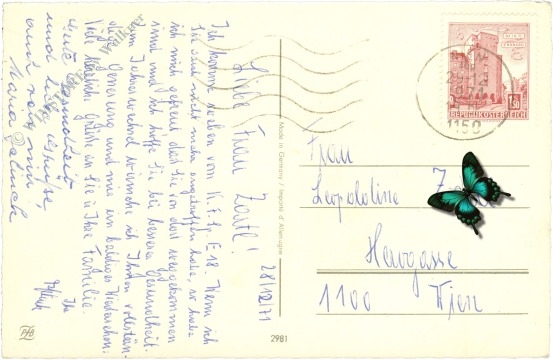 28/12/71
Liebe Frau Zartl!
Ich komme soeben vom K.F.Jp. E 18. Wenn ich
Sie auch nicht mehr angetroffen habe, so habe
ich mich gefreut daß Sie von dort weggekommen
sind und ich hoffe Sie bei bester Gesundheit.
Zum Jahreswechsel wünsche ich Ihnen vollstän-
dige Genesung und mir ein baldiges Wiedersehen.
Viele herzliche Grüße an Sie u Ihre Familie
Ihr
Gute Gesundheit
und liebe Grüße,
auch von mir,
Maria
Made in Germany / Importé d'Allemagne
2981
PAB
REPUBLIK ÖSTERREICH
1150
Frau
Leopoldine
Herzgasse
1100 Wien